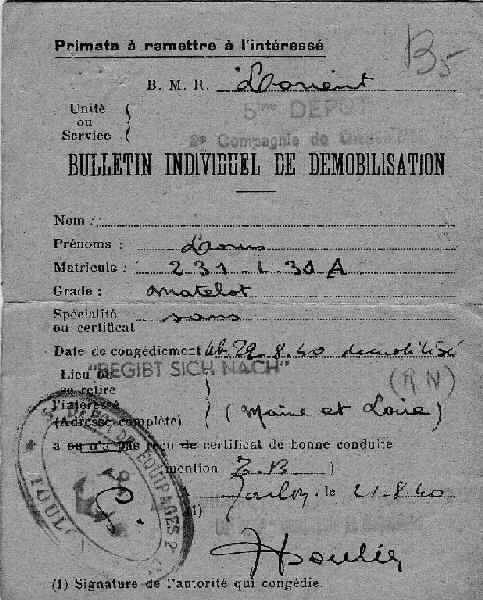 Primata à remettre à l'intéressé
B5
B. M. R. Lorient
Unité
ou
Service
5ème DEPOT
2e Compagnie de
BULLETIN INDIVIDUEL DE DEMOBILISATION
Nom :
Prénoms : Louis
Matricule : 231 L 30 A
Grade : matelot
Spécialité
ou certificat sans
Date de congédiement 22.8.40 demobilisé
"BEGIBT SICH NACH"
Lieu où
se retire
l'intéressé
(Adresse complète)
(RN)
(Maine et Loire)
a ou n'a pas reçu de certificat de bonne conduite
mention T.B )
Toulon, le 21-8-40
(1)
EQUIPAGES
TOULON
(1) Signature de l'autorité qui congédie.